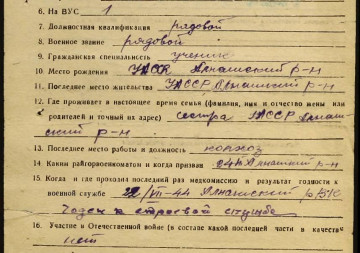 6. На ВУС 1
7. Должностная квалификация рядовой
8. Военное звание рядовой
9. Гражданская специальность ученик
10. Место рождения УАССР Алнашский р-н
11. Последнее место жительства УАССР Алнашский р-н
12. Где проживает в настоящее время семья (фамилия, имя и отчество жены или
родителей и точный их адрес) сестра УАССР Алнаш-
ский р-н
13. Последнее место работы и должность колхоз
14. Каким райгорвоенкоматом и когда призван Алнашский р-н
15. Когда и где проходил последний раз медкомиссию и результат годности к
военной службе 22/VII-44 Алнашский РВК
Годен к строевой службе
16. Участие в Отечественной войне (в составе какой последней части в качестве
нет